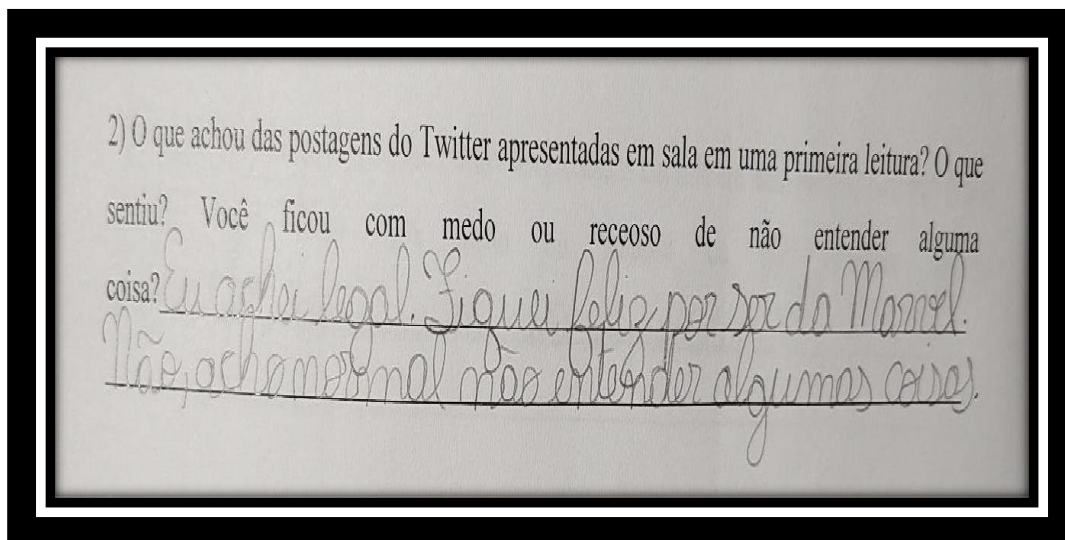 2) O que achou das postagens do Twitter apresentadas em sala em uma primeira leitura? O que
sentiu? Você ficou com medo ou receoso de não entender alguma
coisa? Eu achei legal. Fiquei feliz por ser da Marvel.
Não, acho normal não entender algumas coisas.